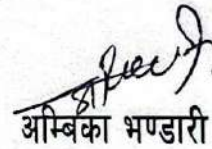 अम्बिका भण्डारी